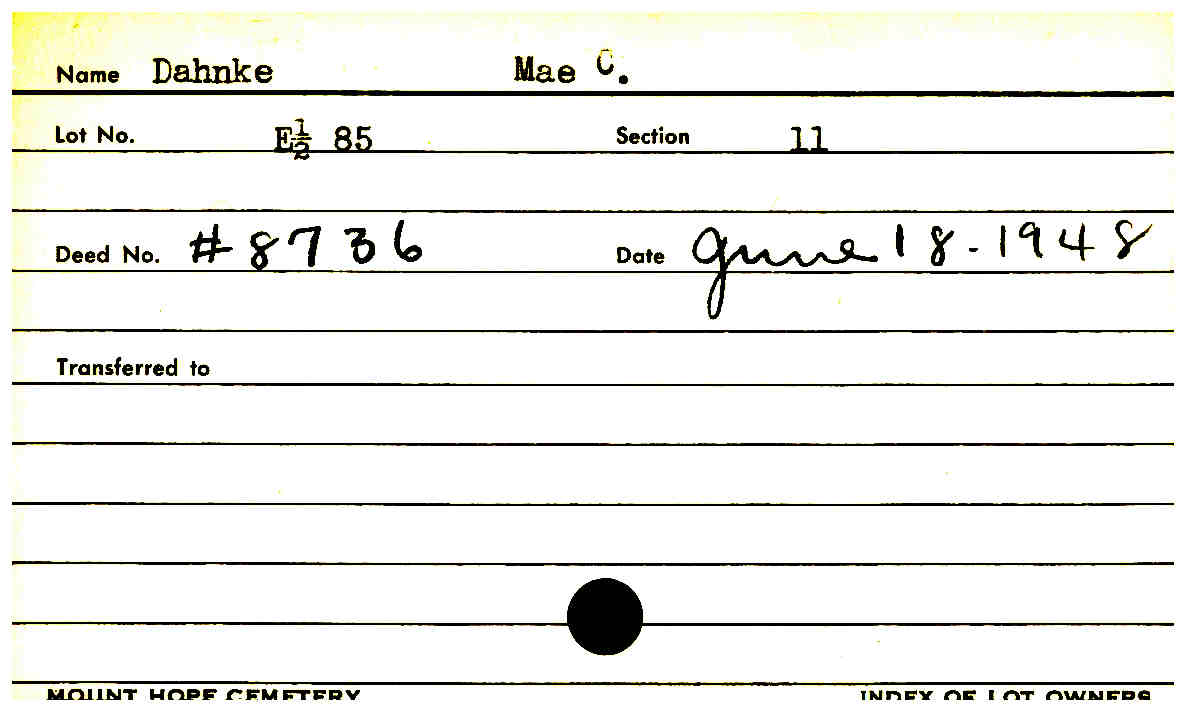 Name Dahnke Mae C.
Lot No. E½ 85 Section 11
Deed No. #8736 Date June 18-1948
Transferred to
MOUNT HOPE CEMETERY INDEX OF LOT OWNERS